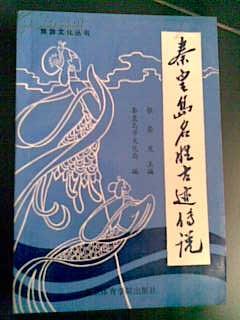 旅游文化丛书
秦皇岛名胜古迹传说
主编
秦皇岛市文化局 编
体育学院出版社